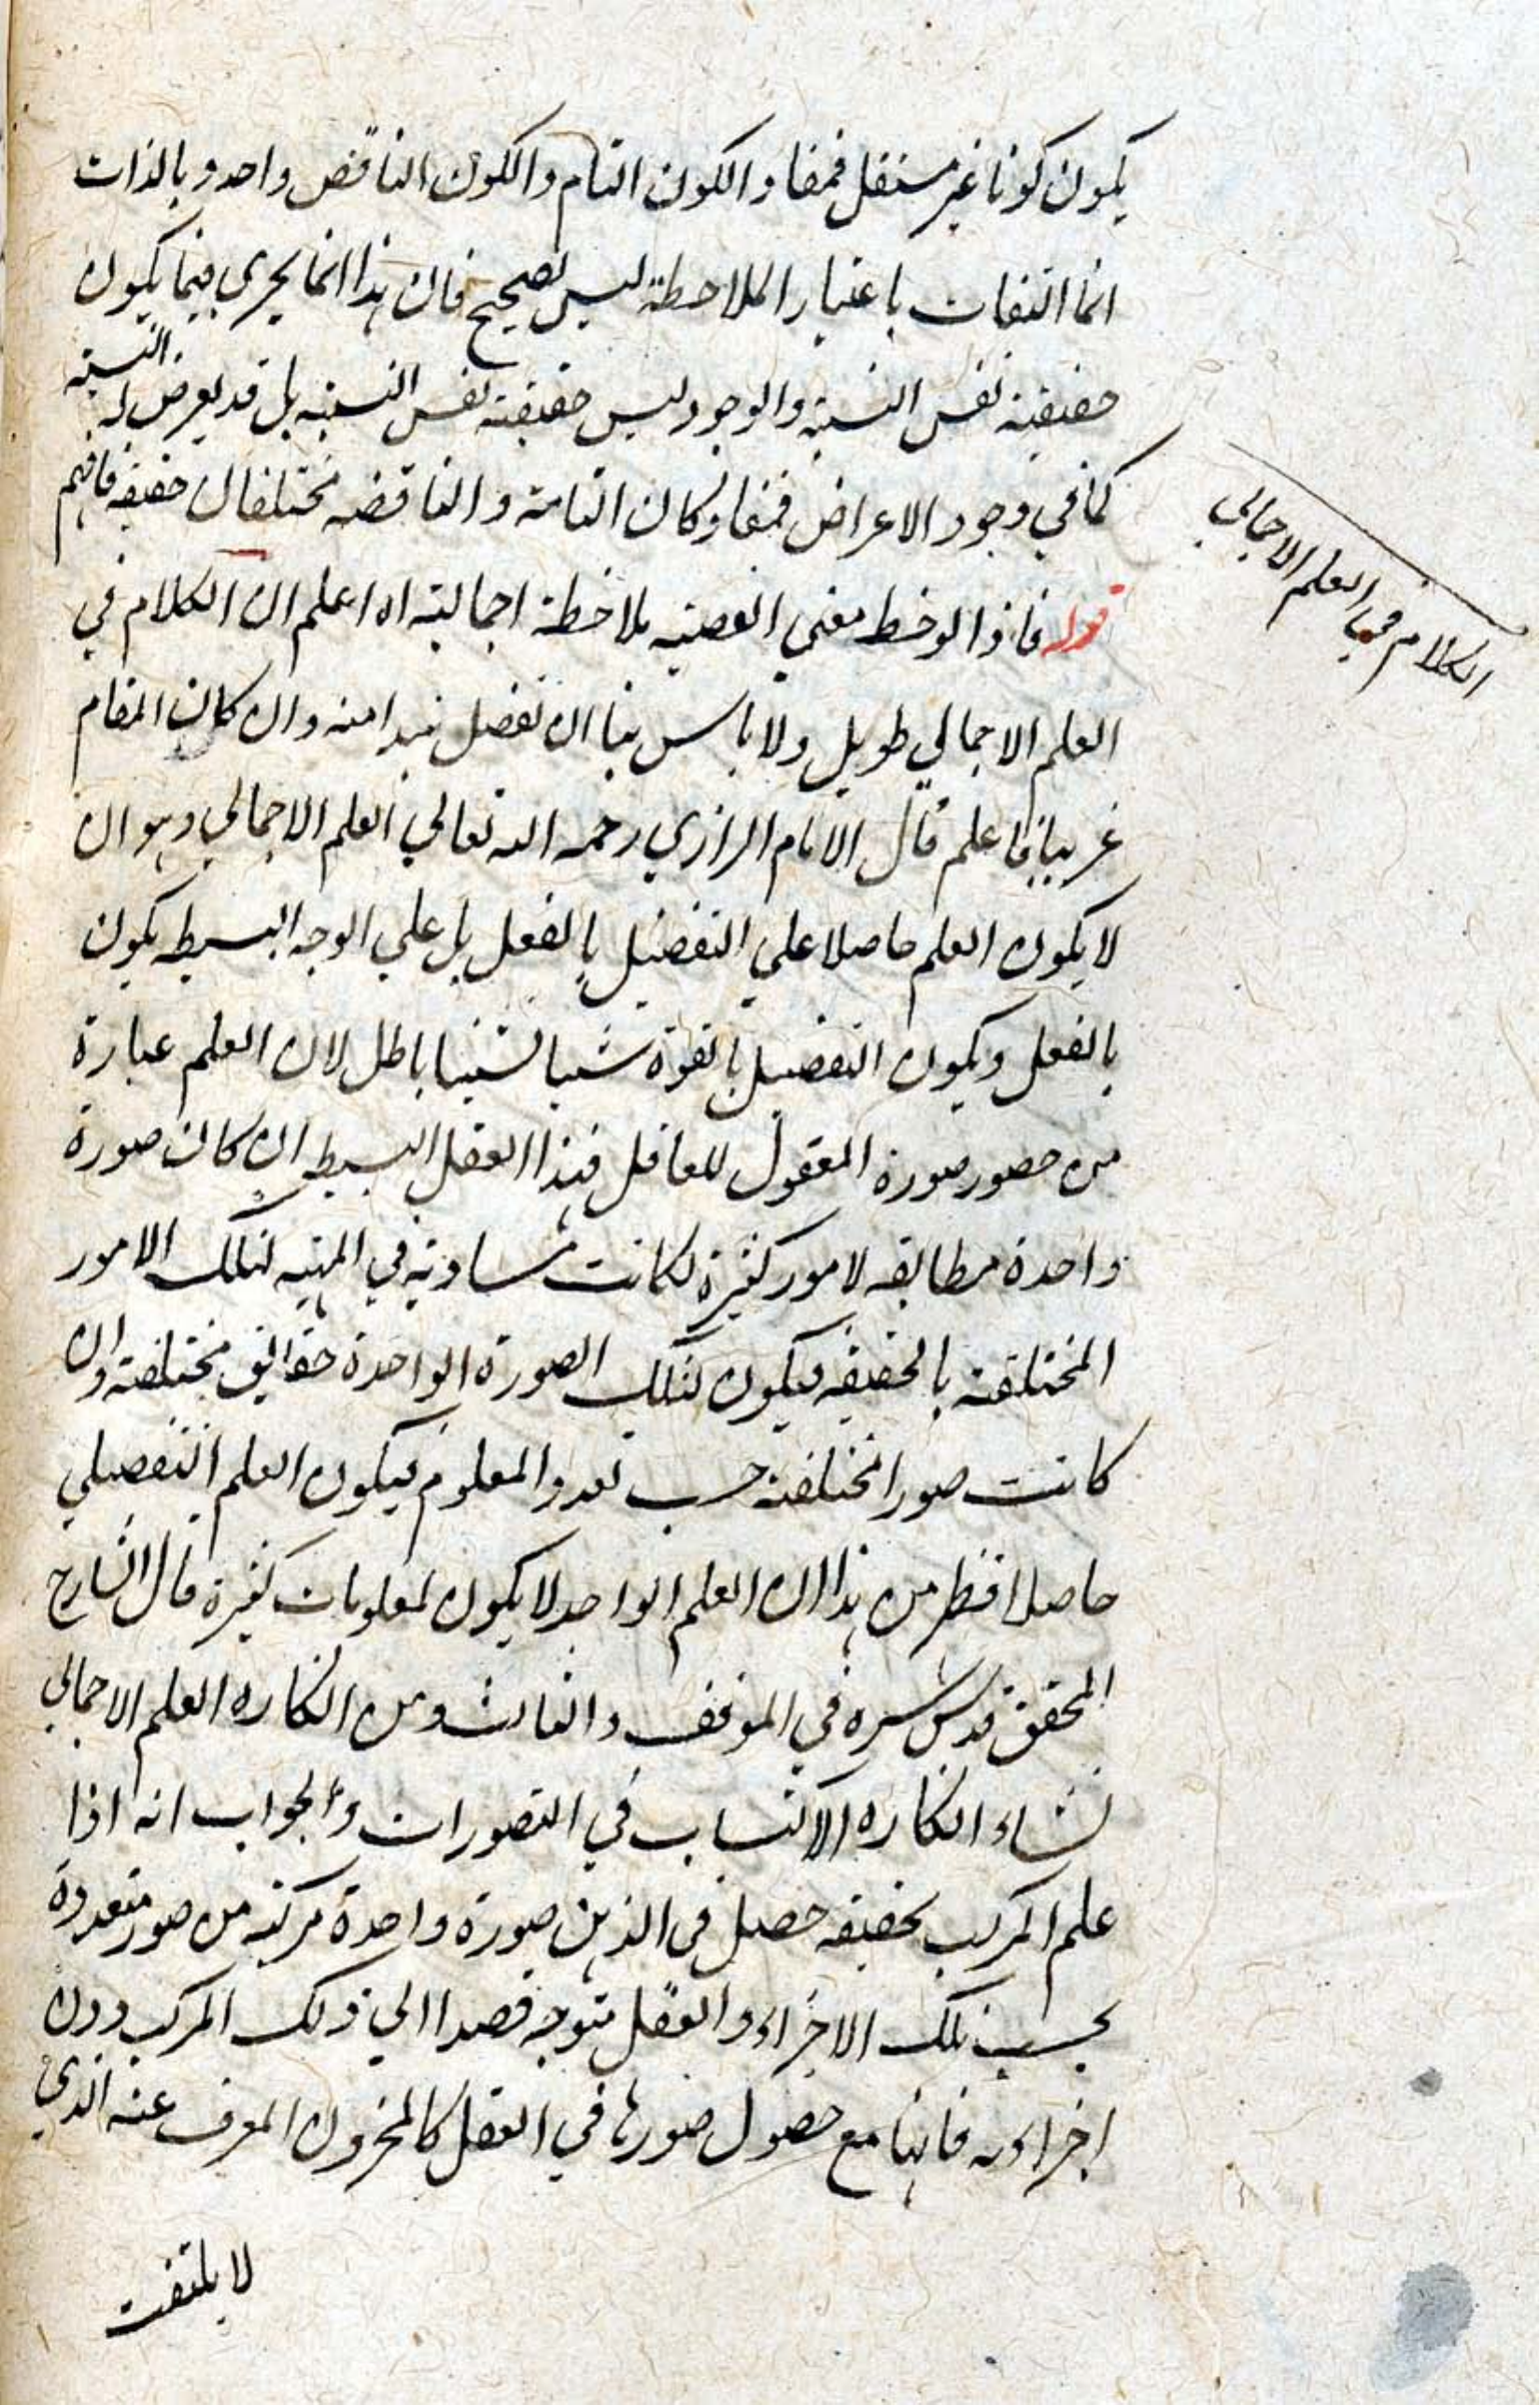 يكون كونا غير مستقل فمفاد الكون التام والكون الناقص واحد وبالذات
انما التفات باعتبار الملاحظة ليس بصحيح فان هذا انما يجري فيما يكون
حقيقته نفس النسبة والوجود ليس حقيقته نفس النسبة بل قد يعرض له النسبة
كما في وجود الاعراض فمفاد كان التامة والناقصة مختلفان حقيقة فافهم
قوله فاذا لوحظ معنى القضية ملاحظة اجمالية اه اعلم ان الكلام في
العلم الاجمالي طويل ولا باس بنا ان نفصل نبذا منه وان كان المقام
غريبا فاعلم قال الامام الرازي رحمه الله تعالي العلم الاجمالي وهو ان
لا يكون العلم حاصلا علي التفصيل بالفعل بل علي الوجه البسيط يكون
بالفعل ويكون التفصيل بالقوة شيئا فشيئا باطل لان العلم عبارة
من حضور صورة المعقول للعاقل فهذا العقل البسيط ان كان صورة
واحدة مطابقة لامور كثيرة لكانت مساوية في المهية لتلك الامور
المختلفة بالحقيقة فيكون لتلك الصورة الواحدة حقائق مختلفة وان
كانت صورا مختلفة حسب تعدد المعلوم فيكون العلم التفصيلي
حاصلا فظهر من هذا ان العلم الواحد لا يكون لمعلومات كثيرة قال الشارح
المحقق قدس سره في الموقف الثالث ومن انكاره العلم الاجمالي
نشاء انكاره الاكتساب في التصورات والجواب انه اذا
علم المركب بحقيقة حصل في الذهن صورة واحدة مركبة من صور متعددة
بحسب تلك الاجزاء والعقل متوجه قصدا الي ذلك المركب دون
اجزاءه فانها مع حصول صورها في العقل كالمخزون المعرض عنه الذي
لا يلتفت
الكلام في العلم الاجمالي